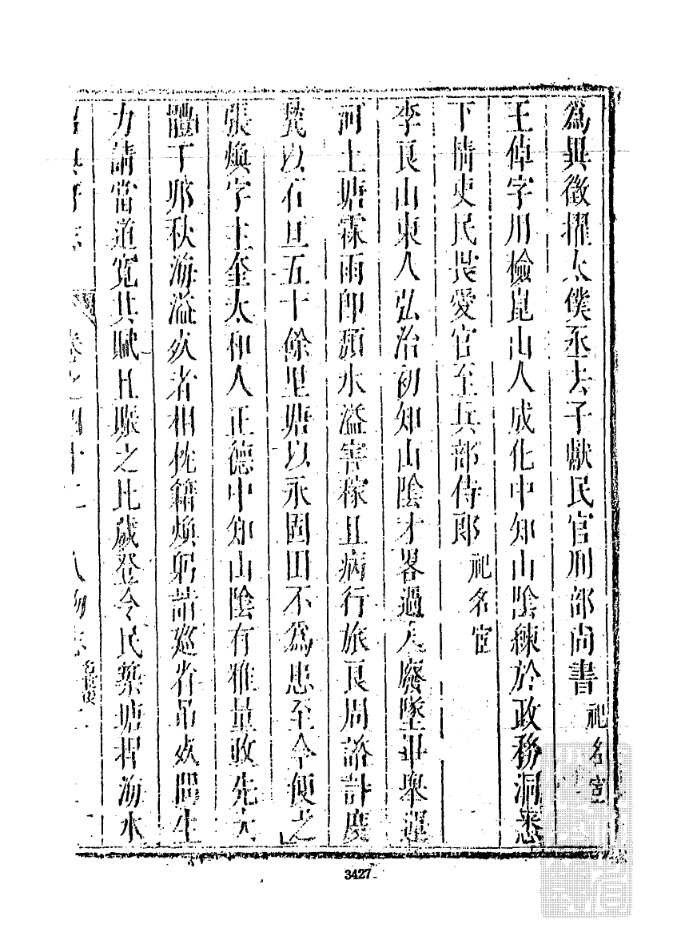 為異徵擢太僕丞去子獻民官刑部尚書祀名宦
王倬字用檢崑山人成化中知山陰練於政務洞悉
下情吏民畏愛官至兵部侍郎祀名宦
李良山東人弘治初知山陰才畧過人廢墜畢舉運
河土塘霖雨即頹水溢害稼且病行旅良周諮計度
甃以石亘五十餘里塘以永固田不為患至今便之
張煥字主奎太和人正德中知山陰有雅量政先大
體丁卯秋海溢死者相枕籍煥躬詣巡省吊死問生
力請當道寬其賦且賑之比歲登令民築塘捍海水
紹興府志 卷之四十二 人物志 名宦
3427